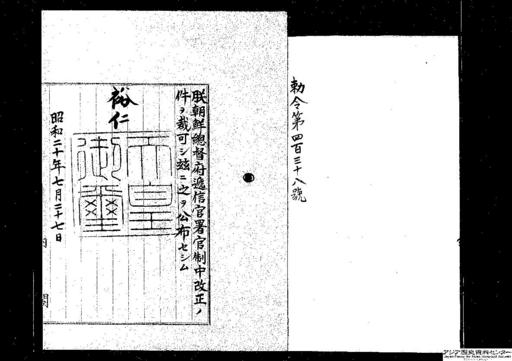 勅令第四百三十八號
朕朝鮮總督府遞信官署官制中改正ノ
件ヲ裁可シ玆ニ之ヲ公布セシム
裕仁
天皇
御璽
昭和二十年七月二十七日
内閣
アジア歴史資料センター